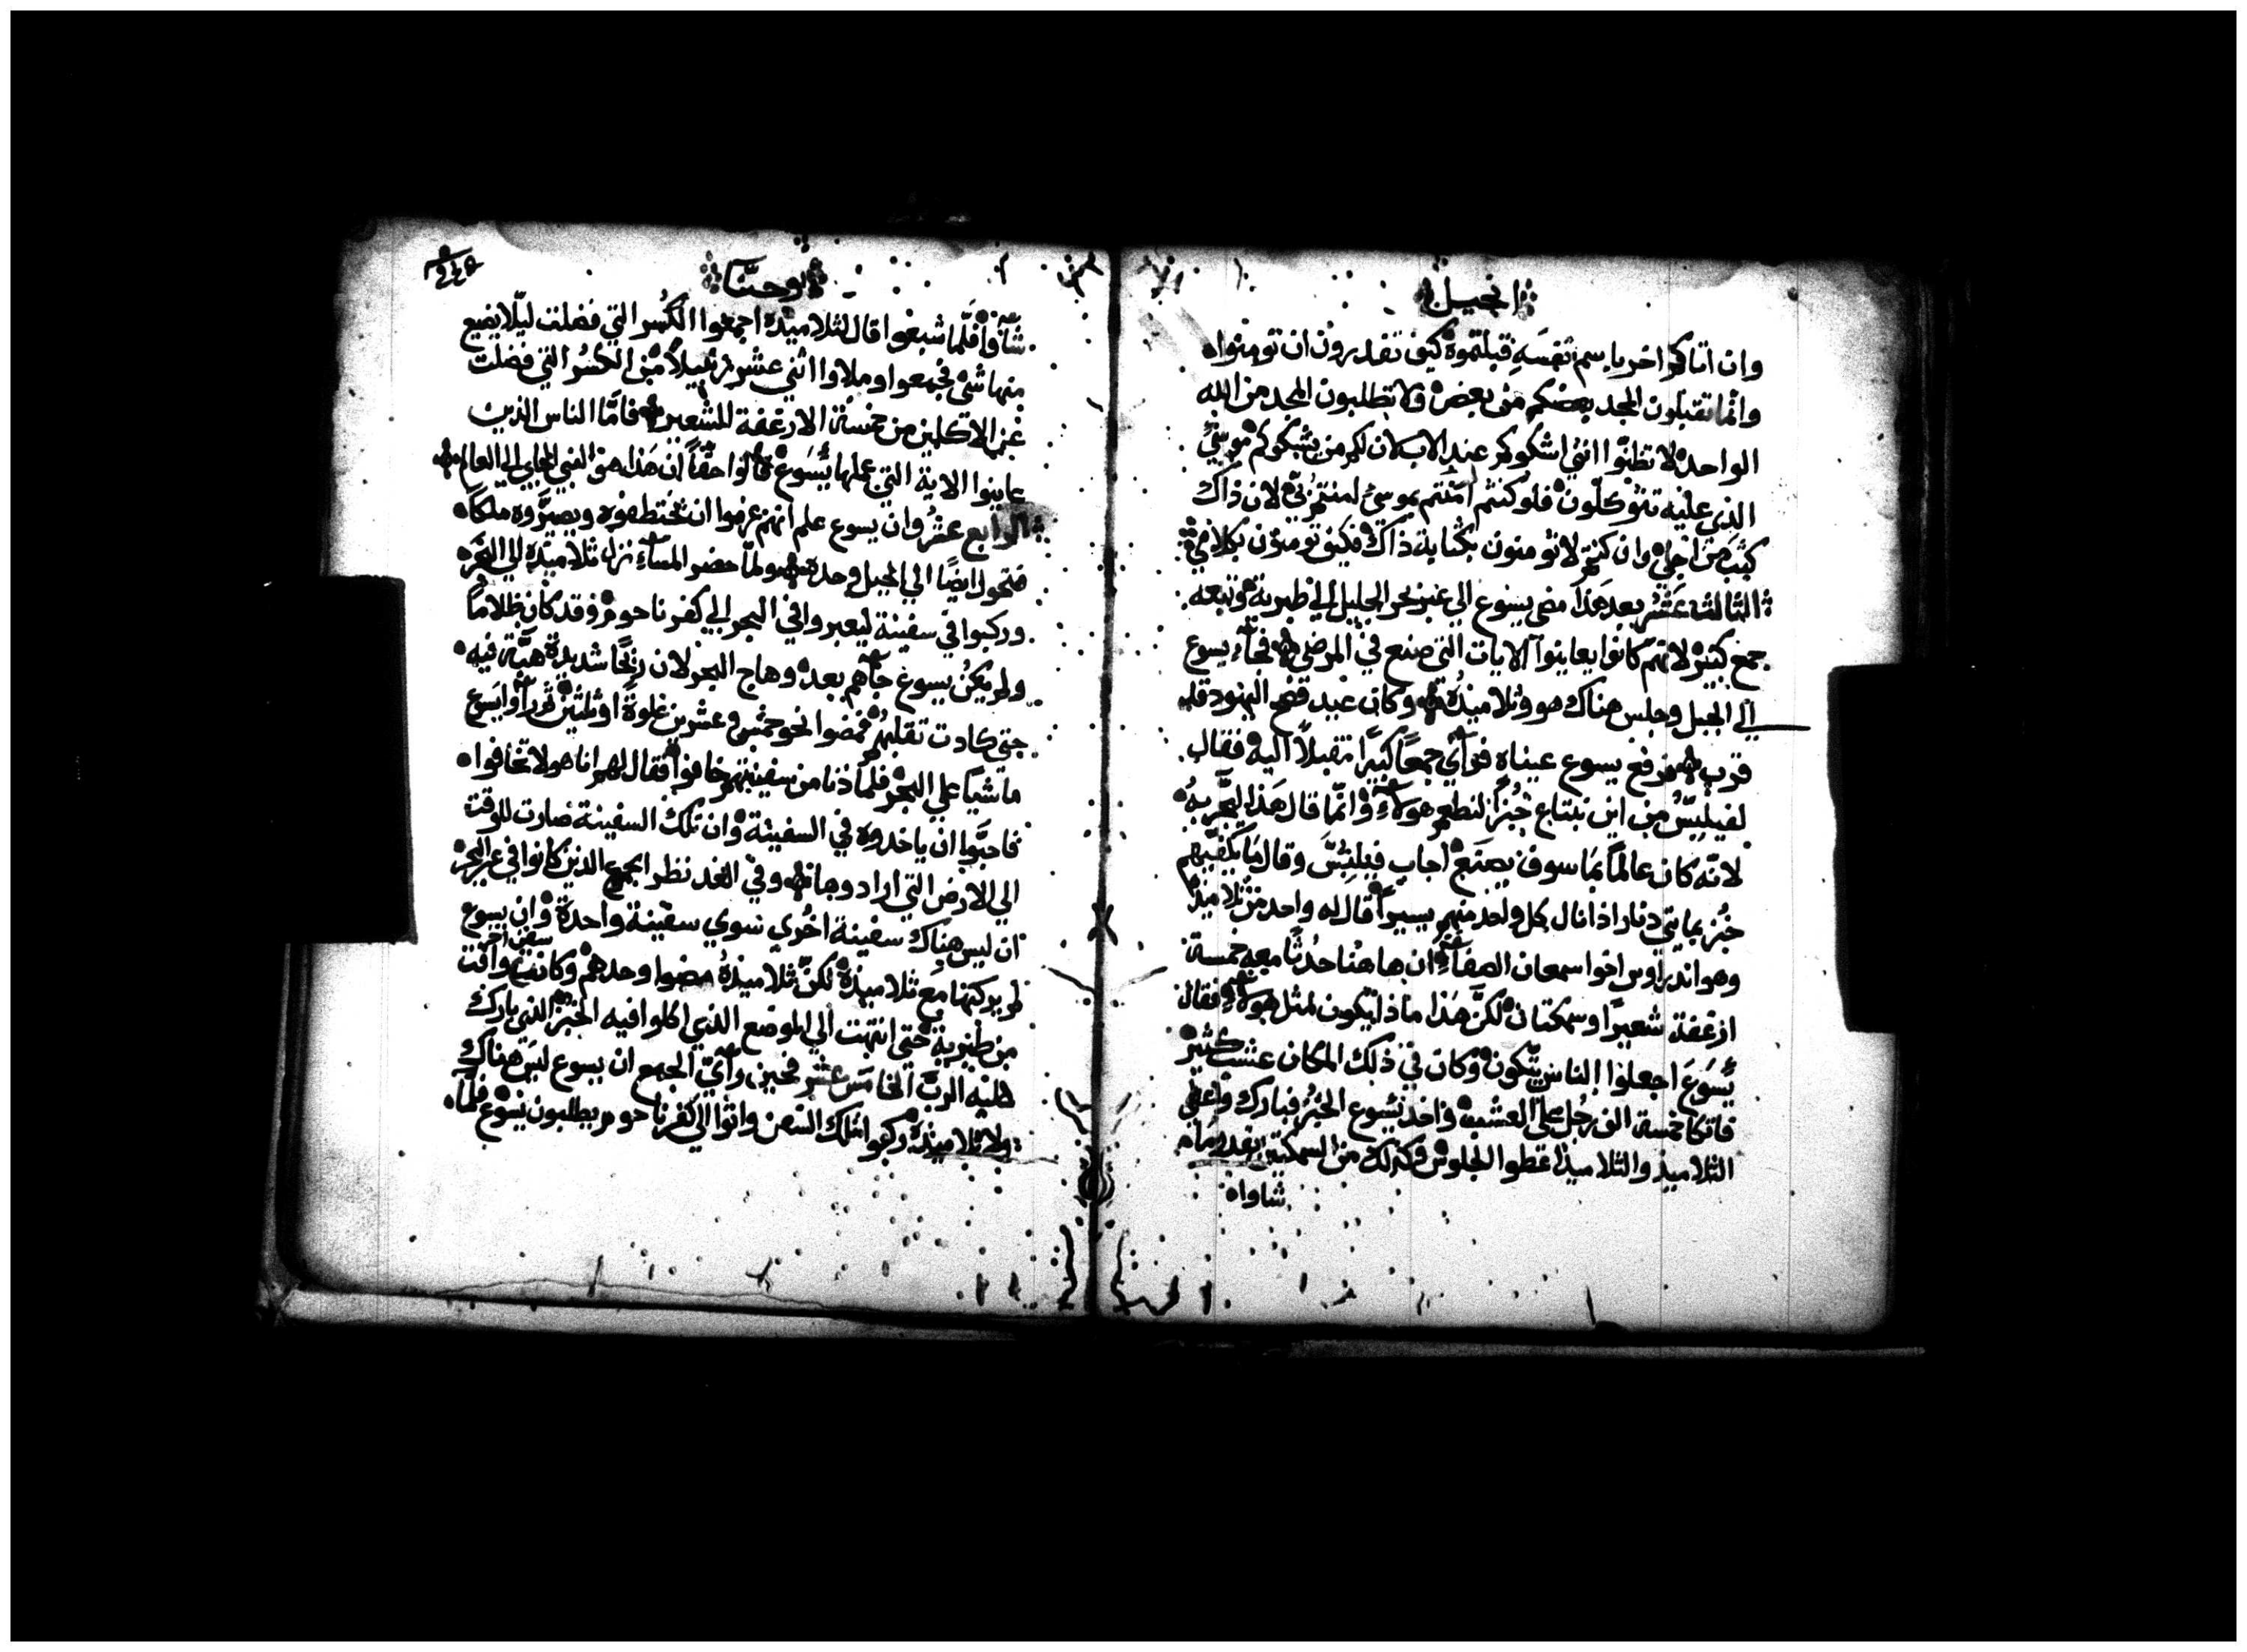 انجيل
وان اتاكم اخر باسم نفسه قبلتموه كيف تقدرون ان تومنوا
وانما تقبلون المجد بعضكم من بعض ولا تطلبون المجد من الله
الواحد لا تظنوا انني اشكوكم عند الاب لان لكم من يشكوكم موسى
الذي عليه تتوكلون فلو كنتم امنتم بموسى لمنتم بي لان ذاك
كتب من اجلي وان كنتم لا تومنون بكتابة ذاك فكيف تومنون بكلامي
الثالث عشر بعد هذا مضى يسوع الي عبر بحر الجليل الي طبرية وتبعه
جمع كثير لانهم كانوا يعاينوا الايات التي صنع في المرضى فجاء يسوع
الي الجبل وجلس هناك هو وتلاميذه وكان عيد فصح اليهود قد
قرب فرفع يسوع عيناه فراي جمعا كبيرا مقبلا اليه فقال
لفيلبس من اين نبتاع خبزا لنطعم هولاء وانما قال هذا ليجربه
لانه كان عالما بما سوف يصنع اجاب فيلبس وقال ما يكفيهم
خبز بمايتي دينار اذا نال كل واحد منهم يسيرا قال له واحد من تلاميذه
وهو اندراوس اخوا سمعان الصفاء ان هاهنا حدثا معه خمسة
ارغفة شعيرا وسمكتان لكن هذا ماذا يكون لمثل هولاء فقال
يسوع اجعلوا الناس يتكون وكان في ذلك المكان عشب كثير
فاتكا خمسة الف رجل على العشب واخذ يسوع الخبز فبارك واعطي
التلاميذ والتلاميذ اعطوا الجلوس وكذلك من السمكتين بقدر ما
شاوا
يوحنا
شاوا فلما شبعوا قال لتلاميذه اجمعوا الكسر التي فضلت ليلا يضيع
منها شي فجمعوا وملاوا اثني عشر زنبيلا من الكسر التي فضلت
عن الاكلين من خمسة الارغفة للشعير فاما الناس الذين
عاينوا الاية التي عملها يسوع قالوا حقا ان هذا هو النبي الجاي الي العالم
الرابع عشر وان يسوع علم انهم عزموا ان يختطفوه ويصيروه ملكا
فتحول ايضا الي الجبل وحده ولما حضر المساء نزل تلاميذه الي البحر
وركبوا في سفينة ليعبروا في البحر الي كفرناحوم وقد كان ظلاما
ولم يكن يسوع جاهم بعد وهاج البحر لان ريحا شديدة هبت فيه
حتي كادت تقلبهم فمضوا نحو خمس وعشرين غلوة او ثلثين فراوا يسوع
ماشيا علي البحر فلما دنا من سفينتهم خافوا فقال لهم انا هو لا تخافوا
فاحبوا ان ياخدوه في السفينة وان تلك السفينة صارت للوقت
الي الارض التي ارادوها وفي الغد نظر الجمع الذين كانوا في عبر البحر
ان ليس هناك سفينة اخري سوي سفينة واحدة وان يسوع
لم يركبها مع تلاميذه لكن تلاميذه مضوا وحدهم وكانت سفن اخر وافت
من طبرية حتي انتهت الي الموضع الذي اكلوا فيه الخبز الذي بارك
عليه الرب الخامس عشر فحين راي الجمع ان يسوع ليس هناك
ولا تلاميذه ركبوا تلك السفن واتوا الي كفرناحوم يطلبون يسوع فلما